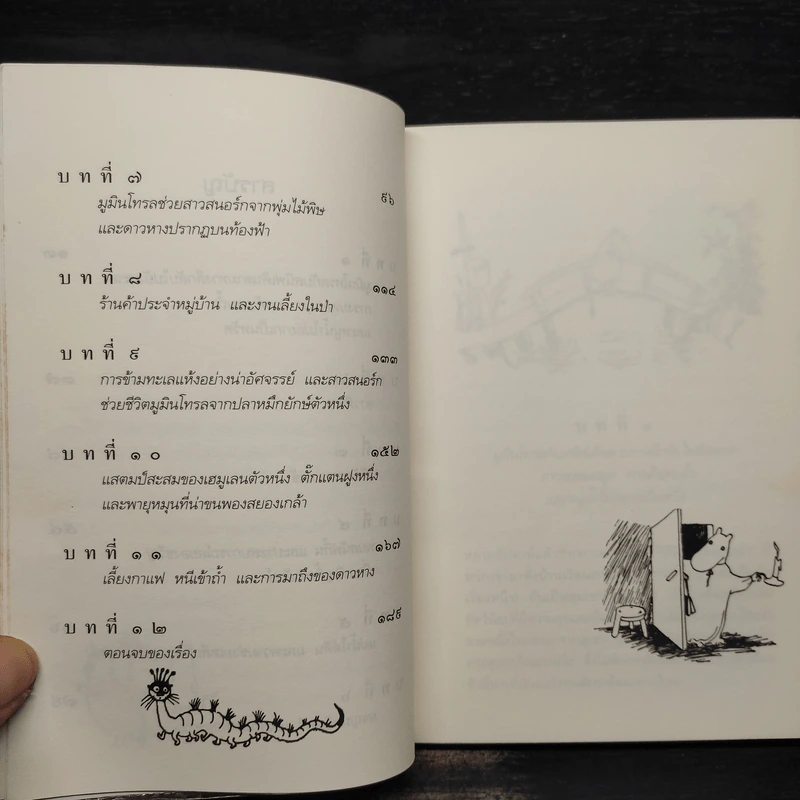 บทที่ ๗
มูมินโทรลช่วยสาวสนอร์กจากพุ่มไม้พิษ ๙๖
และดาวหางปรากฏบนท้องฟ้า
บทที่ ๘
ร้านค้าประจำหมู่บ้าน และงานเลี้ยงในป่า ๑๑๔
บทที่ ๙
การข้ามทะเลแห้งอย่างน่าอัศจรรย์ และสาวสนอร์ก ๑๓๓
ช่วยชีวิตมูมินโทรลจากปลาหมึกยักษ์ตัวหนึ่ง
บทที่ ๑๐
แสตมป์สะสมของเฮมูเลนตัวหนึ่ง ตั๊กแตนฝูงหนึ่ง ๑๕๒
และพายุหมุนที่น่าขนพองสยองเกล้า
บทที่ ๑๑
เลี้ยงกาแฟ หนีเข้าถ้ำ และการมาถึงของดาวหาง ๑๖๗
บทที่ ๑๒
ตอนจบของเรื่อง ๑๘๙